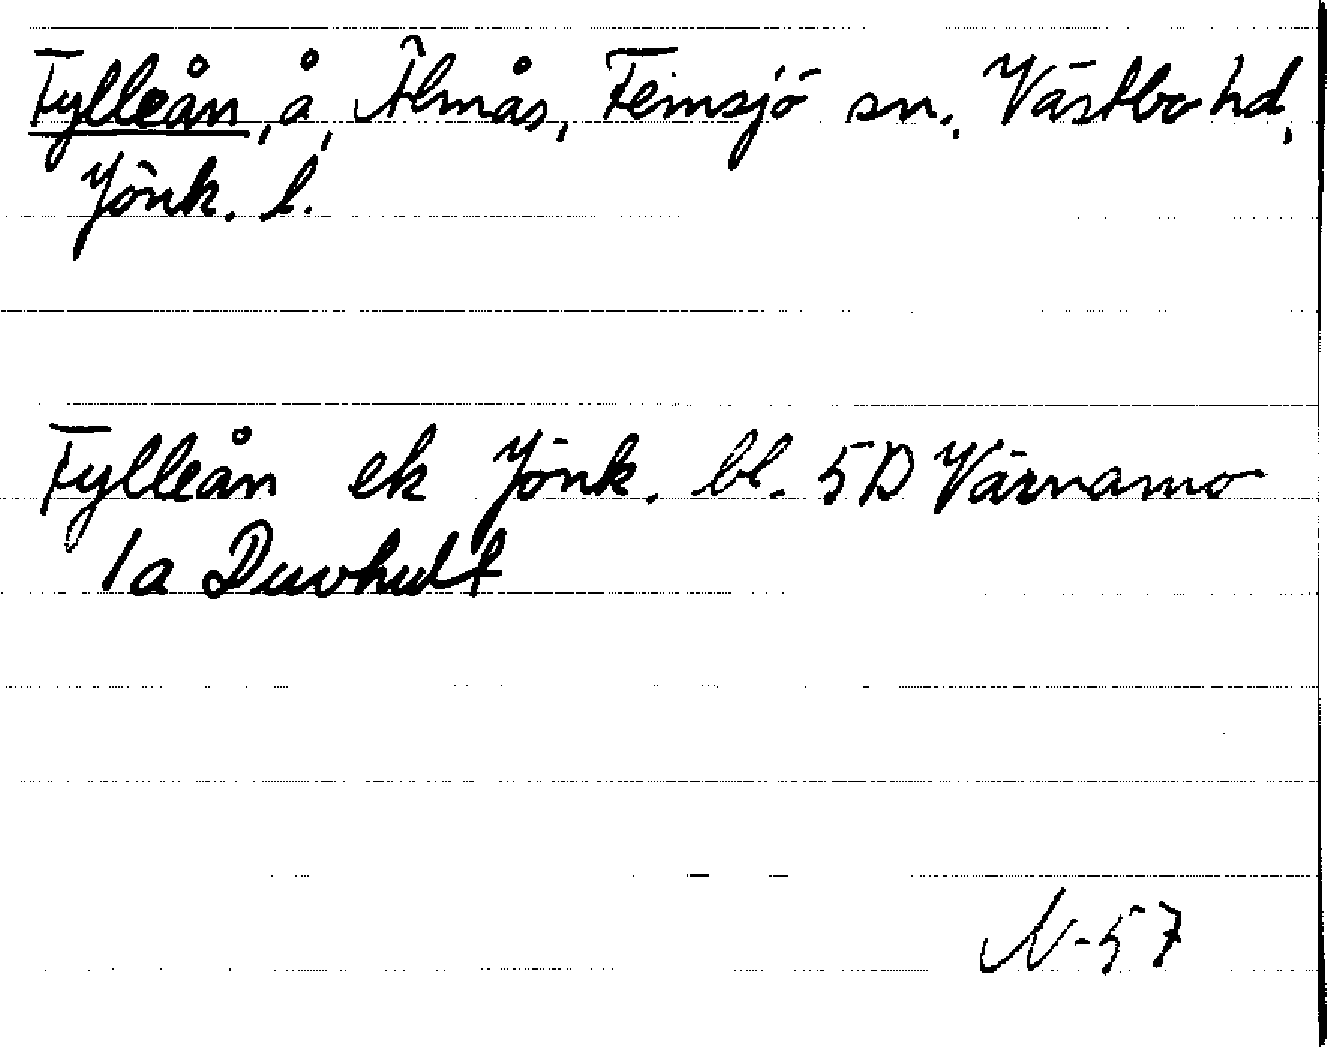 Fylleån, å, Älmås, Femsjö sn., Västbo hd,
Jönk. l.
Fylleån ek Jönk. bl. 5D Värnamo
1a Duvhult
N-57